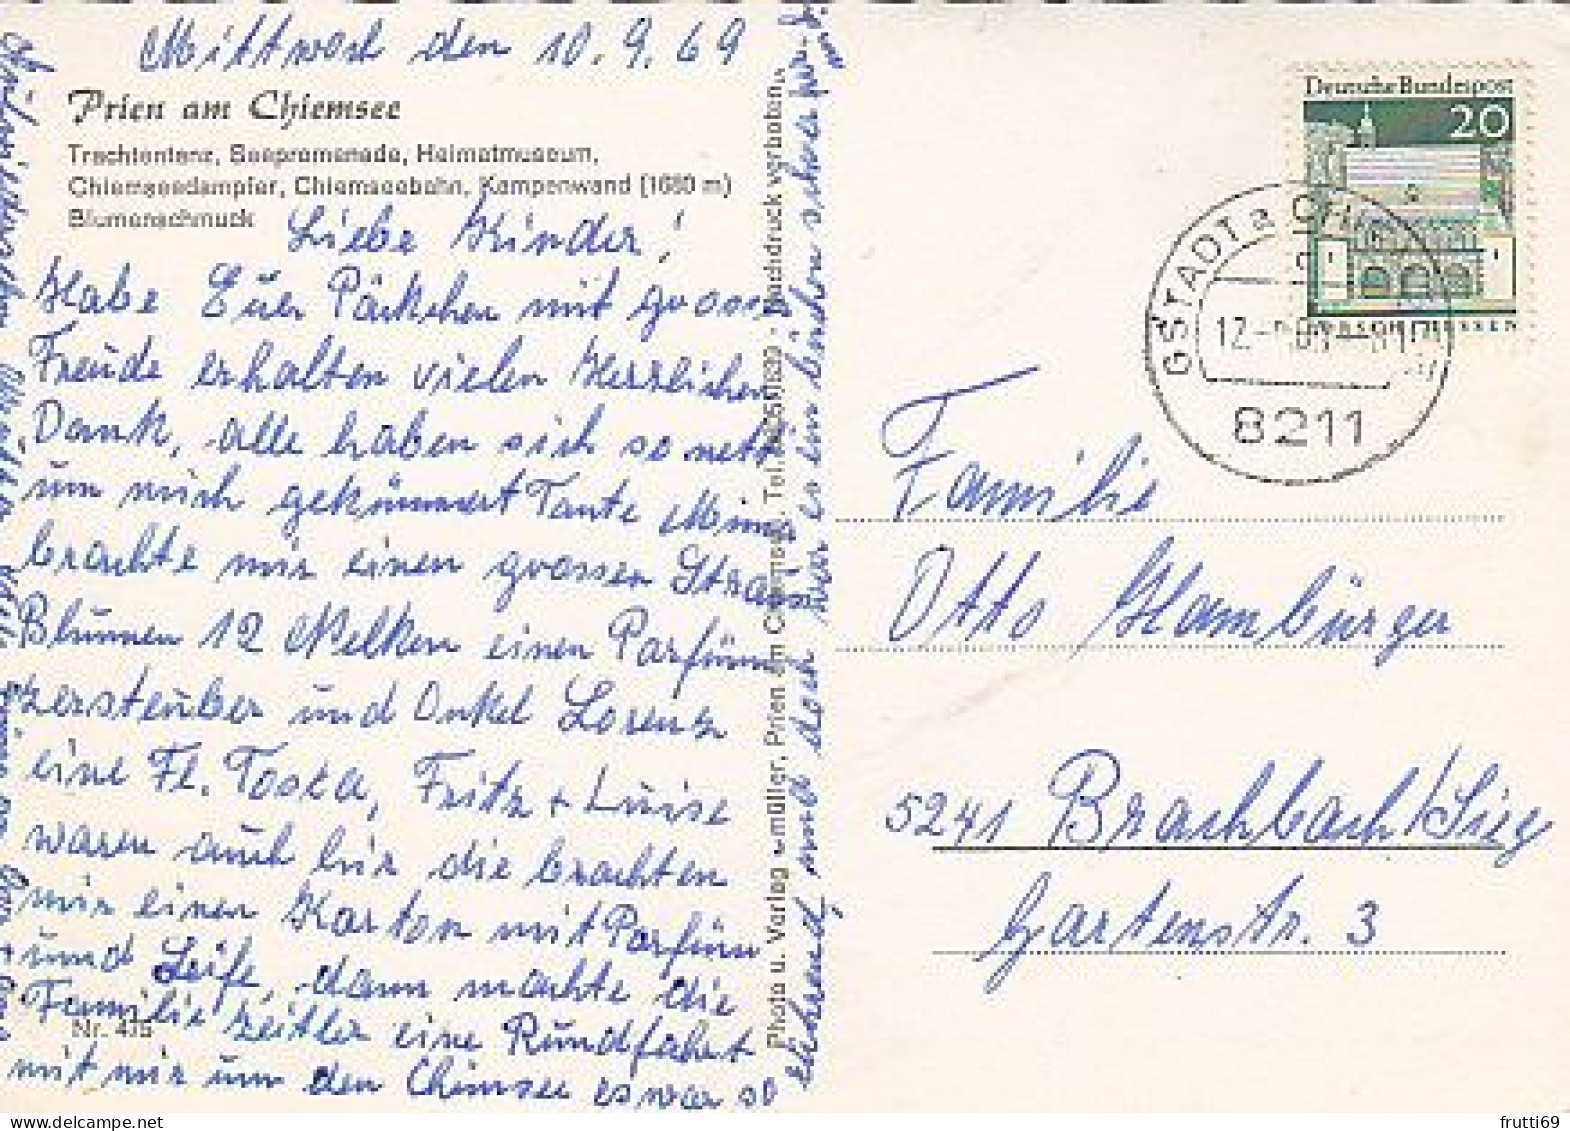 Mittwoch den 10.9.69
Prien am Chiemsee
Trachtentanz, Seepromenade, Heimatmuseum,
Chiemseedampfer, Chiemseebahn, Kampenwand (1680 m)
Blumenschmuck
Liebe Kinder!
Habe Euer Päckchen mit grosser
Freude erhalten vielen Herzlichen
Dank, alle haben sich so nett
um mich gekümmert Tante Mimi
brachte mir einen grossen Strauß
Blumen 12 Nelken einen Parfüm
zersteuber und Onkel Lorenz
eine Fl. Tosca, Fritz + Luise
waren auch hir die brachten
mir einen Karton mit Parfüm
und Seife, dann machte die
Familie Zeitler eine Rundfahrt
mit mir um den Chimsee es war so
rührend, und doch war es ein bischen schwer für
Nr. 475
Photo u. Verlag
müller, Prien am Chiemsee, Tel.
Nachdruck verboten
Deutsche Bundespost
20
GSTADT a. CH
8211
Familie
Otto Hambürger
5241 Brachbach/Sieg
Gartenstr. 3
frutti69